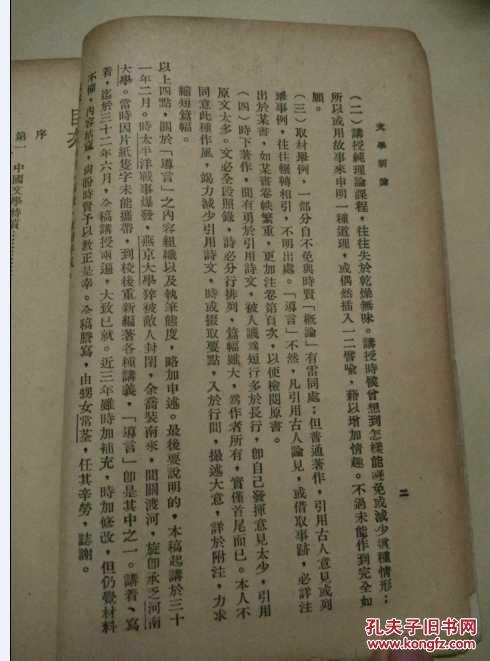 文學導論
二
（二）講授純理論課程，往往失於乾燥無味。講授時候曾想到怎樣能避免或減少這種情形；
所以或用故事來申明一種道理，或偶然插入一二譬喻，藉以增加情趣。不過未能作到完全如
願。
（三）取材舉例，一部分自不免與時賢「概論」有雷同處；但普通著作，引用古人意見或列
舉事例，往往輾轉相引，不明出處。「導言」不然，凡引用古人論見，或借取事跡，必詳注
出於某書，如某書卷帙繁重，更加注卷第頁次，以便檢閱原書。
（四）時下著作，間有勇於引用詩文，被人譏為短行多於長行，卽自己發揮意見太少，引用
原文太多。文必全段照錄，詩必分行排列，篇幅雖大，為作者所有，實僅首尾而已。本人不
同意此種作風，竭力減少引用詩文，時或撮取要點，入於行間，撮述大意，詳於附注，力求
縮短篇幅。
以上四點，關於「導言」之內容組織以及執筆態度，略加申述。最後要說明的，本稿起講於三十
一年二月。時太平洋戰事爆發，燕京大學猝被敵人封閉，余喬裝南來，間關渡河，旋卽承乏河南
大學。當時因片紙隻字未能攜帶，到校後重新編著各種講義，「導言」卽是其中之一。講着、寫
着，迄於三十二年六月，全稿講授兩遍，大致已就。近三年雖時加補充，時加修改，但仍覺材料
不備，內容枯窳，尚盼時賢予以教正是幸。全稿謄寫，由甥女常荃，任其辛勞，誌謝。
序
第一 中國文學特質
孔夫子旧书网
www.kongfz.com